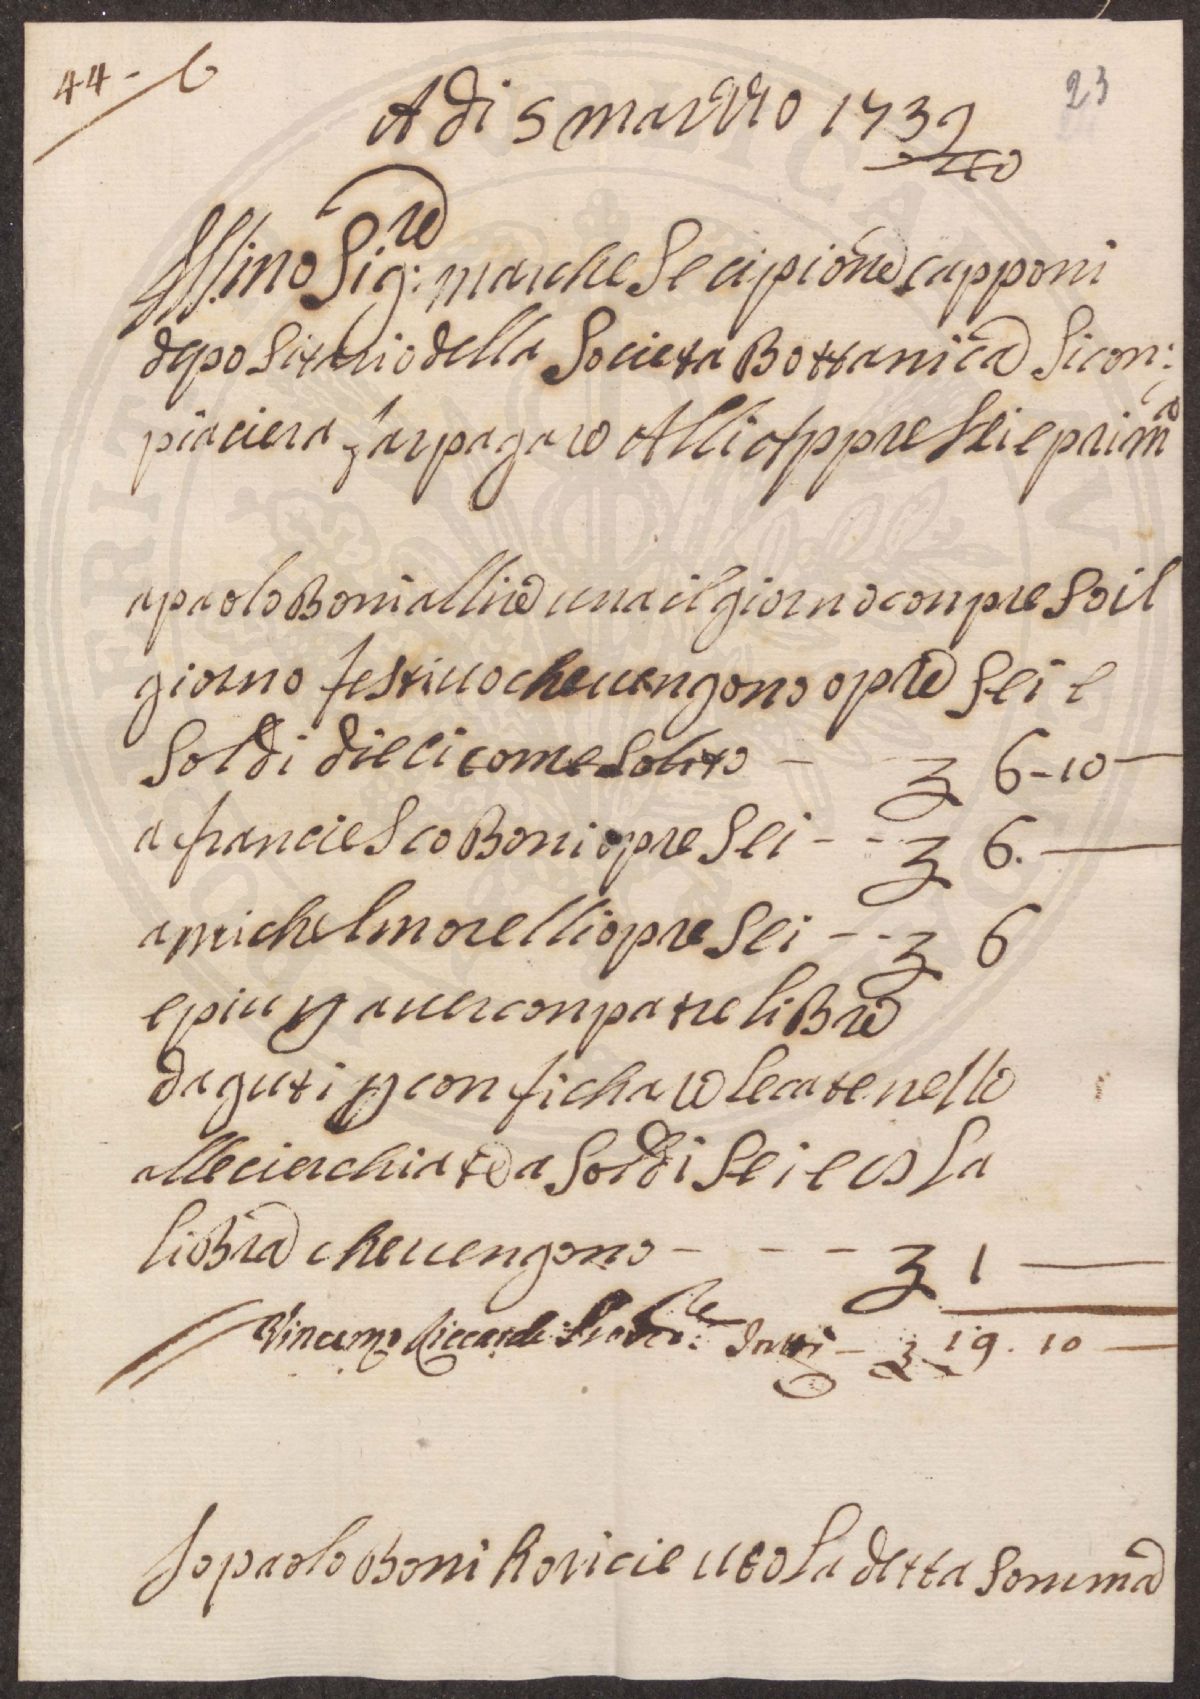 44 - 6
23
A di 5 marzzo 1739
40
Illmo Sig:re marche Scipione Capponi
depositario della Societa Bottanica Si con:
piaciera far pagare Alli Appresseie prima
a paolo Boni allire una il giorno conpreso il
giorno festiuo che uengono opre Sei e
Soldi dieci come Solito - - £ 6-10 —
a franciesco Boni opre Sei - - £ 6. —
a michel morelli opre Sei - - £ 6
e piu p auer conpatre libre
daguti p conficharle le catenelle
alle cierchiate a Soldi Sei e 8 la
libra che uengono - - - - £ 1 —
Vincenzo Riccardi Sotti - £ 19. 10 —
Io paolo Boni ho ricieuto la detta Somma